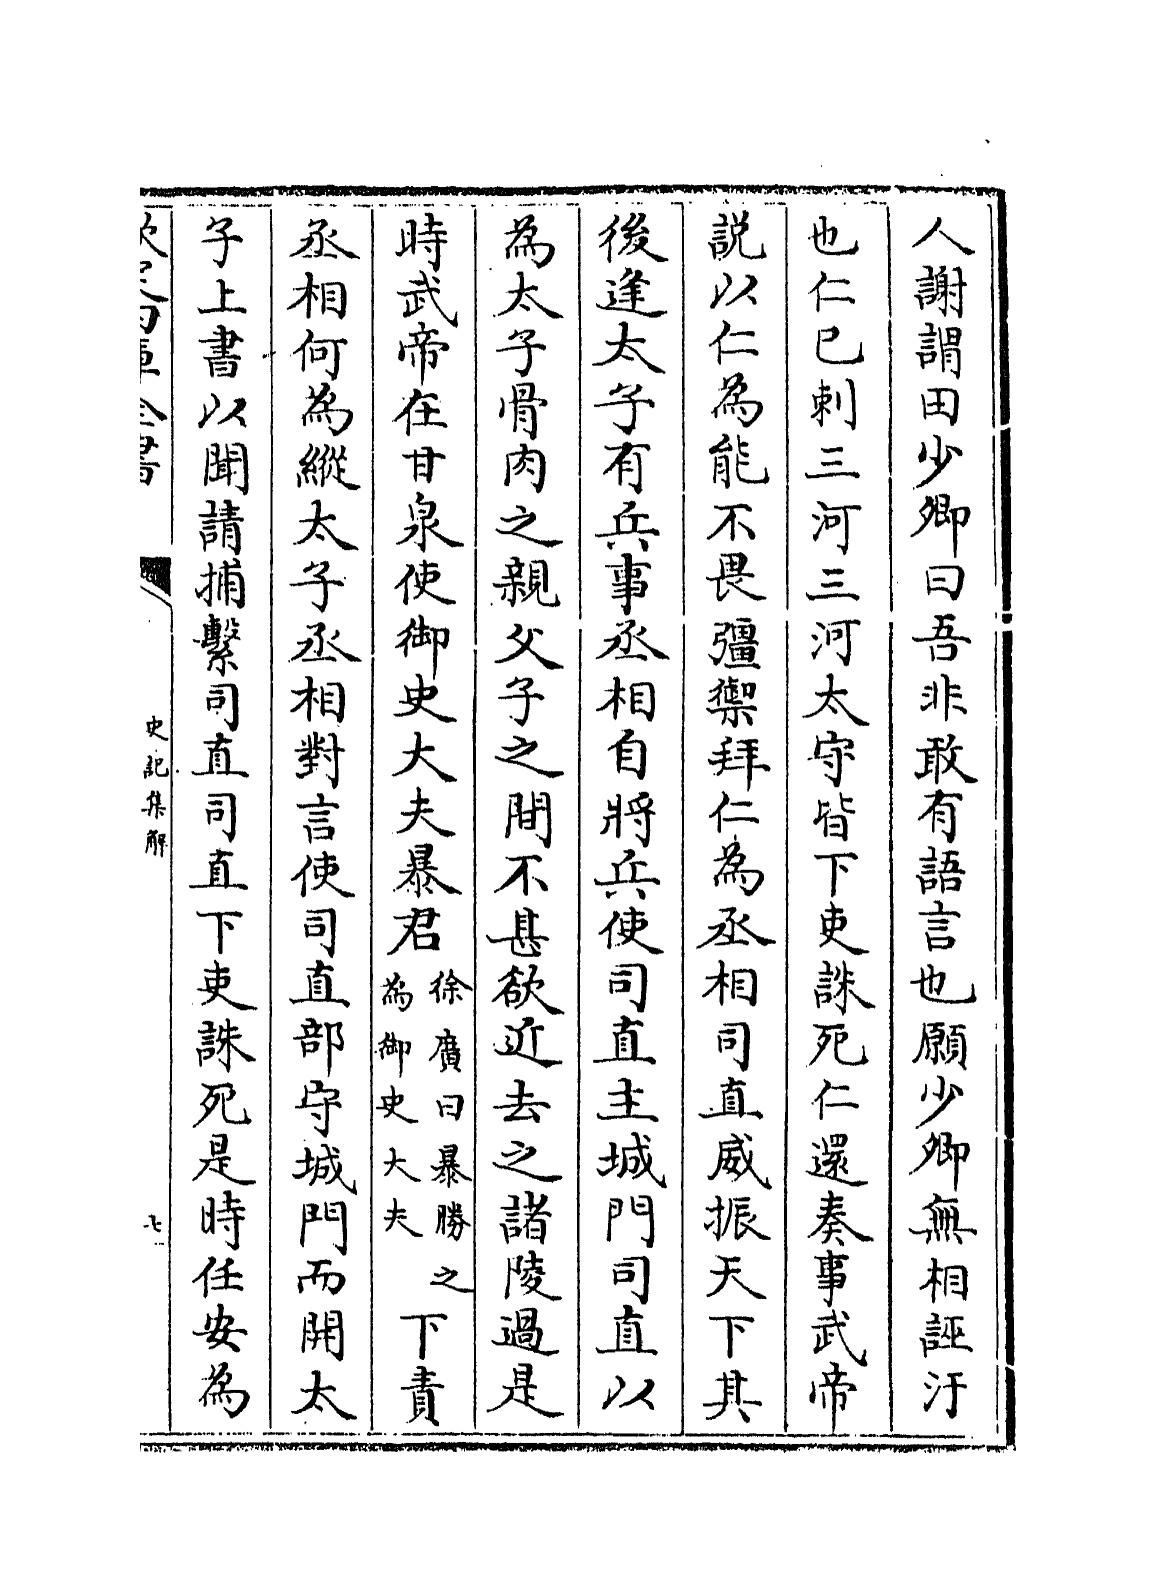 人謝謂田少卿曰吾非敢有語言也願少卿無相誣汙
也仁已刺三河三河太守皆下吏誅死仁還奏事武帝
説以仁為能不畏彊禦拜仁為丞相司直威振天下其
後逢太子有兵事丞相自將兵使司直主城門司直以
為太子骨肉之親父子之間不甚欲近去之諸陵過是
時武帝在甘泉使御史大夫暴君徐廣曰暴勝之為御史大夫下責
丞相何為縱太子丞相對言使司直部守城門而開太
子上書以聞請捕繫司直司直下吏誅死是時任安為
欽定四庫全書
史記集解
七